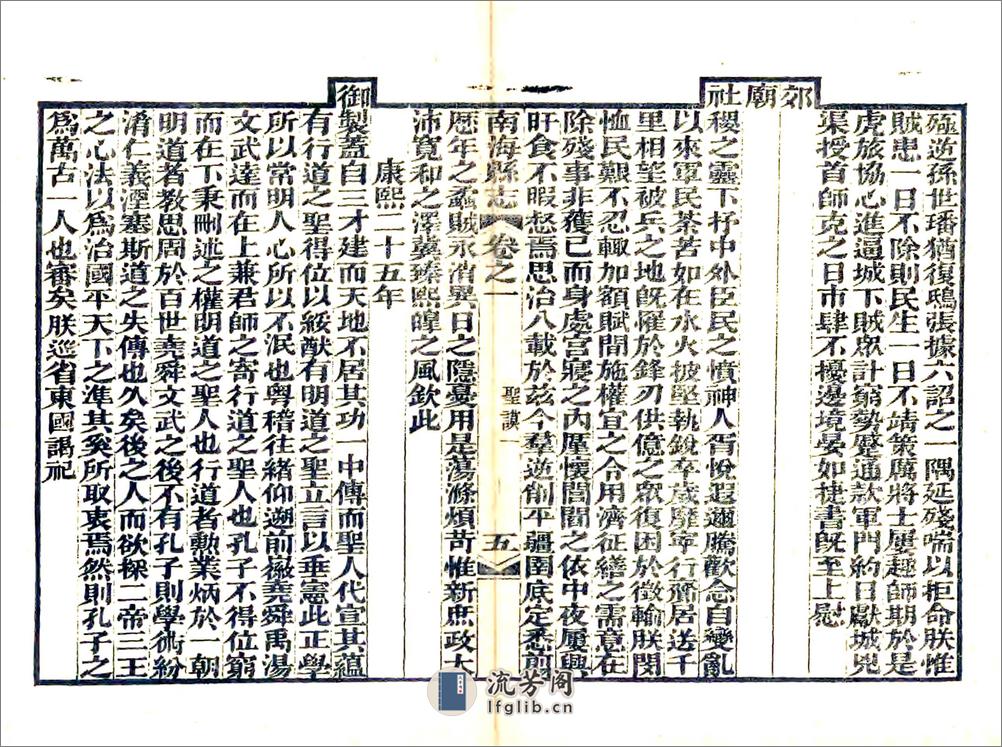 殛逆孫世璠猶復鴟張據六詔之一隅延殘喘以拒命朕惟
賊患一日不除則民生一日不靖策厲將士屢趣師期於是
虎旅協心進逼城下賊眾計窮勢蹙通款軍門約日獻城兇
渠授首師克之日市肆不擾邊境晏如捷書旣至上慰
郊廟社
稷之靈下抒中外臣民之憤神人胥悅遐邇騰歡念自變亂
以來軍民荼苦如在水火披堅執銳卒歲靡寧行齎居送千
里相望被兵之地旣罹於鋒刃供億之眾復困於徵輸朕閔
恤民艱不忍輒加額賦間施權宜之令用濟征繕之需意在
除殘事非獲已而身處宮寢之內厪懷閭閻之依中夜屢興
旰食不暇惄焉思治八載於茲今羣逆削平疆圉底定悉翦
南海縣志
卷之一
聖謨一
五
歷年之蟊賊永消異日之隱憂用是蕩滌煩苛惟新庶政大
沛寬和之澤冀臻熙皥之風欽此
康熙二十五年
御
製蓋自三才建而天地不居其功一中傳而聖人代宣其蘊
有行道之聖得位以綏猷有明道之聖立言以垂憲此正學
所以常明人心所以不泯也粵稽往緒仰遡前徽堯舜禹湯
文武達而在上兼君師之寄行道之聖人也孔子不得位窮
而在下秉刪述之權明道之聖人也行道者勲業炳於一朝
明道者教思周於百世堯舜文武之後不有孔子則學術紛
淆仁義湮塞斯道之失傳也久矣後之人而欲探二帝三王
之心法以爲治國平天下之準其奚所取衷焉然則孔子之
爲萬古一人也審矣朕巡省東國謁祀
流芳阁
lfglib.cn